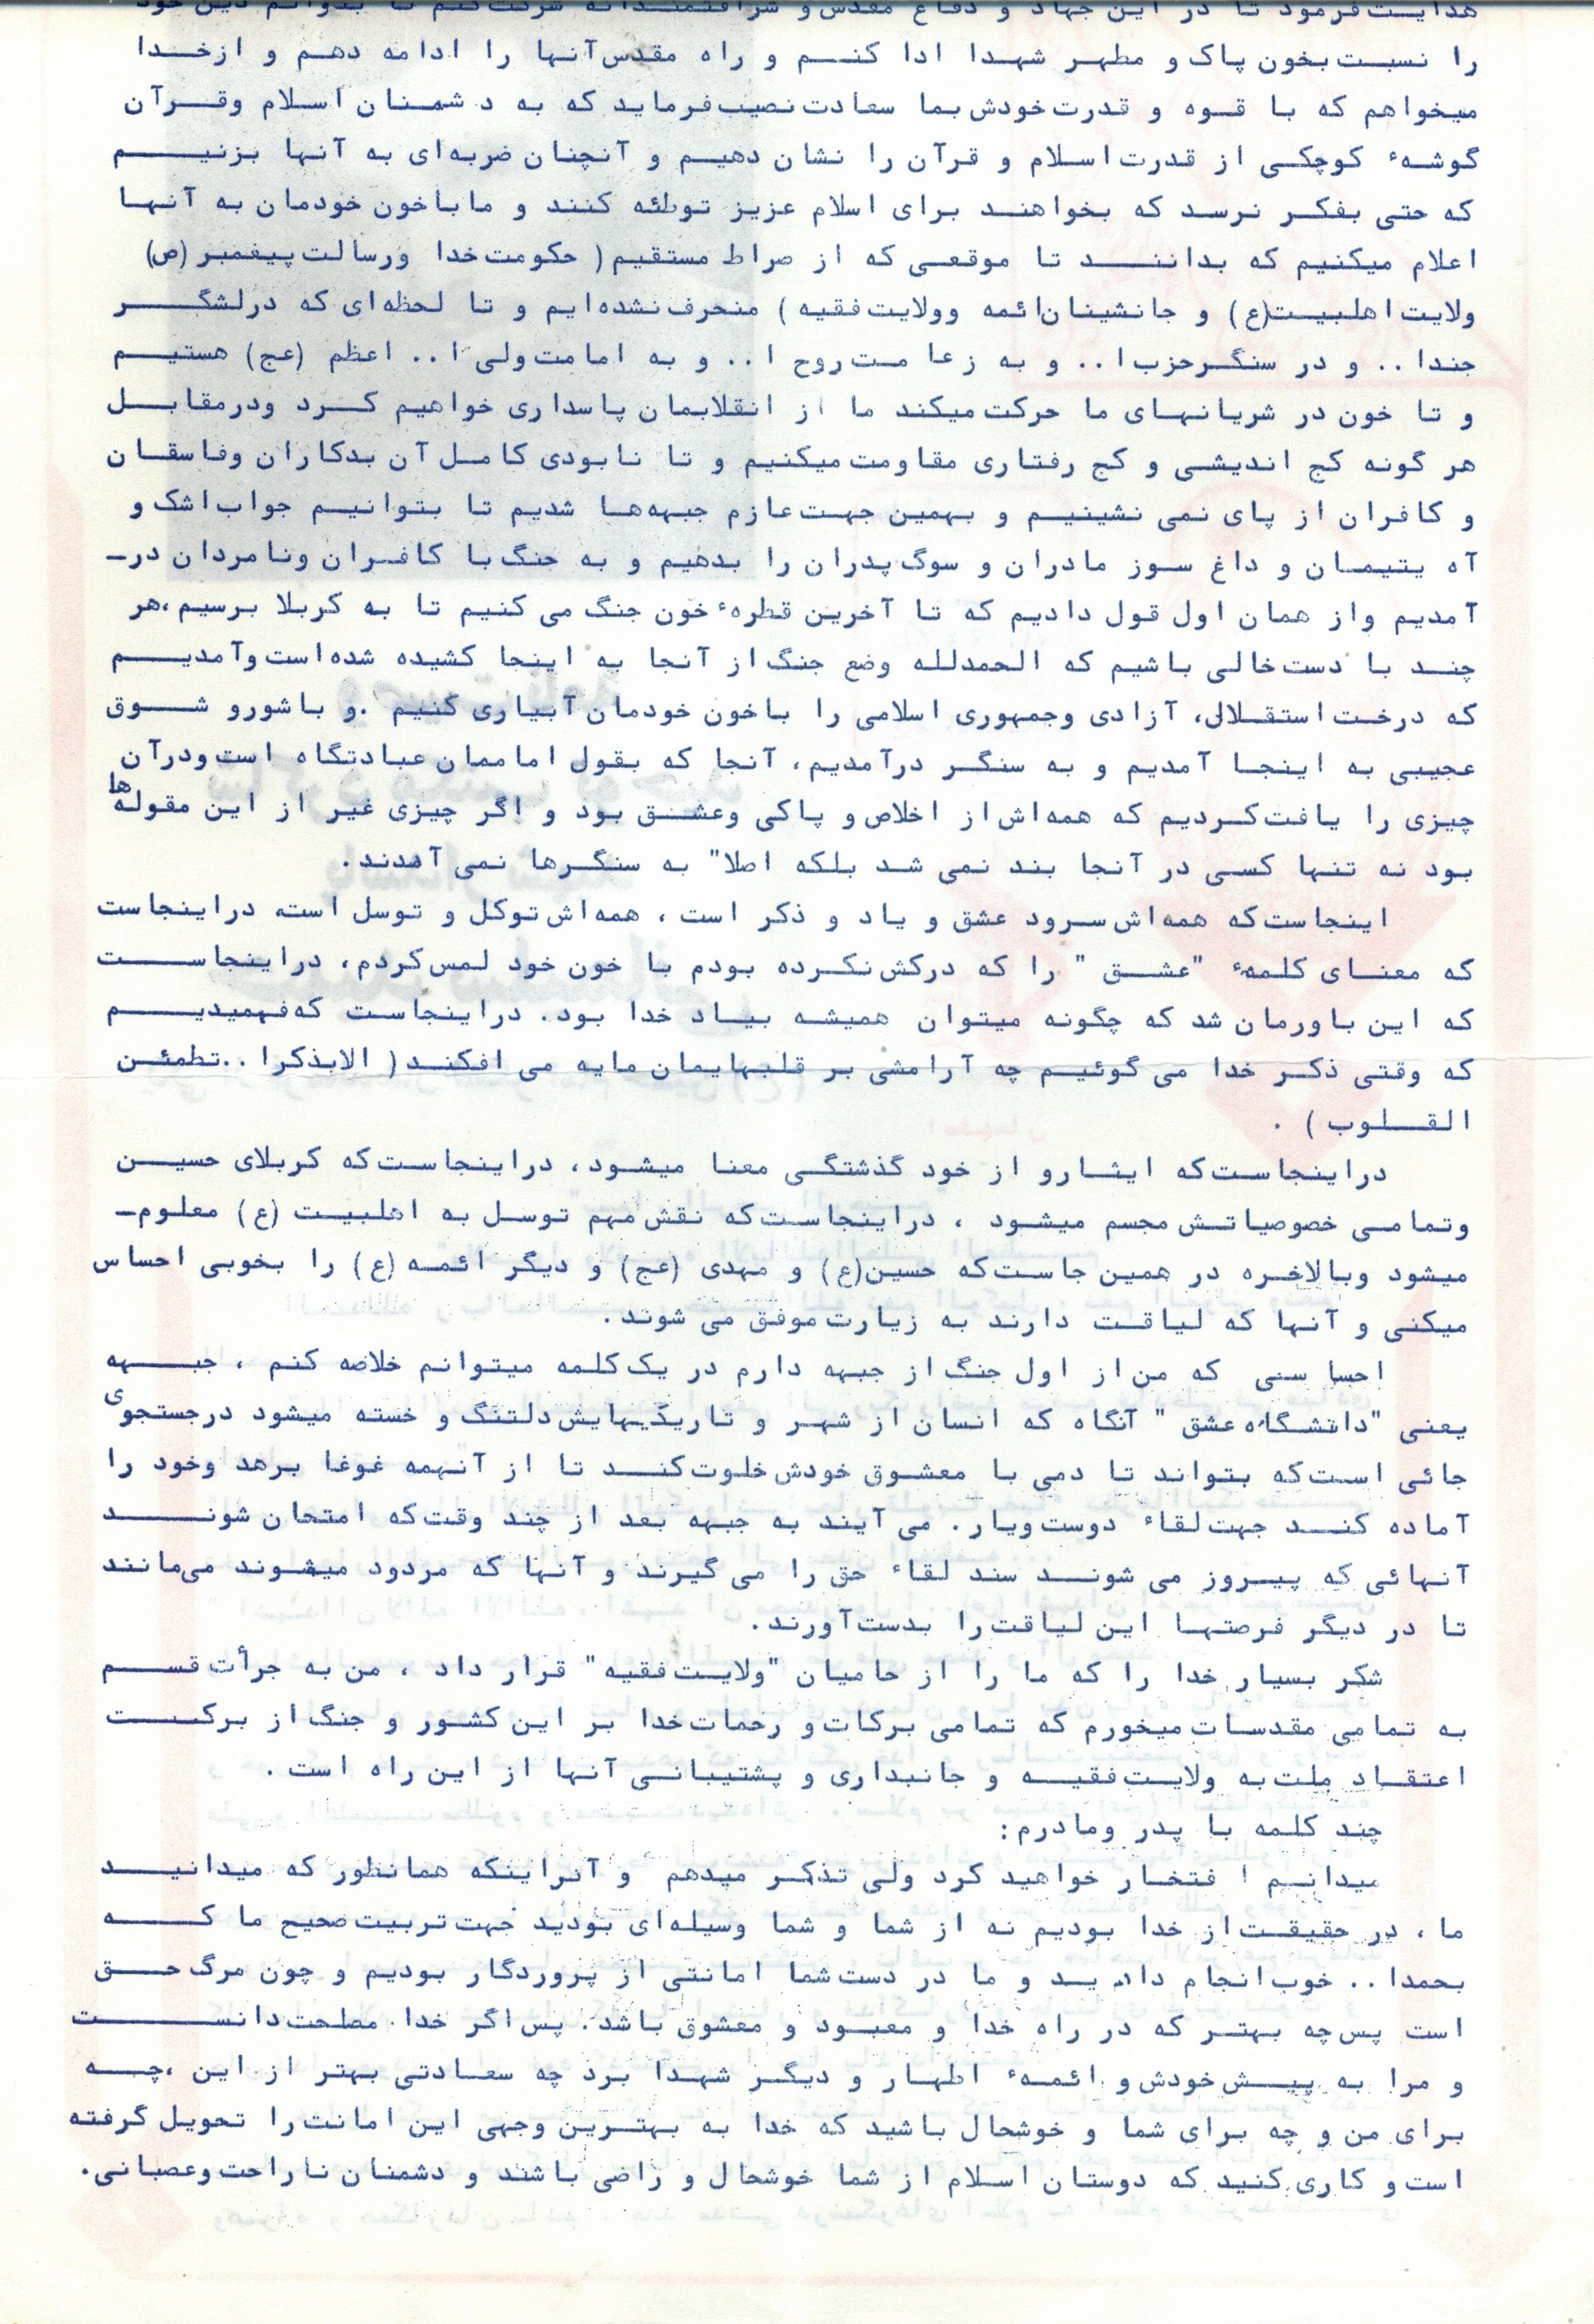 هدایت فرمود تا در این جهاد و دفاع مقدس و شرافتمندانه شرکت کنم تا بتوانم دین خود
را نسبت بخون پاک و مطهر شهدا ادا کنم و راه مقدس آنها را ادامه دهم و از خدا
میخواهم که با قوه و قدرت خودش بما سعادت نصیب فرماید که به دشمنان اسلام وقرآن
گوشهء کوچکی از قدرت اسلام و قرآن را نشان دهیم و آنچنان ضربه‌ای به آنها بزنیم
که حتی بفکر نرسد که بخواهند برای اسلام عزیز توطئه کنند و ما باخون خودمان به آنها
اعلام میکنیم که بدانند تا موقعی که از صراط مستقیم ( حکومت خدا ورسالت پیغمبر (ص)
ولایت اهلبیت(ع) و جانشینان ائمه وولایت فقیه ) منحرف نشده‌ایم و تا لحظه‌ای که درلشگر
جندا .. و در سنگر حزب ا .. و به زعامت روح ا .. و به امامت ولی ا .. اعظم (عج) هستیم
و تا خون در شریانهای ما حرکت میکند ما از انقلابمان پاسداری خواهیم کرد ودرمقابل
هر گونه کج اندیشی و کج رفتاری مقاومت میکنیم و تا نابودی کامل آن بدکاران وفاسقان
و کافران از پای نمی نشینیم و بهمین جهت عازم جبهه‌ها شدیم تا بتوانیم جواب اشک و
آه یتیمان و داغ سوز مادران و سوگ پدران را بدهیم و به جنگ با کافران ونامردان در-
آمدیم واز همان اول قول دادیم که تا آخرین قطرهء خون جنگ می کنیم تا به کربلا برسیم ،هر
چند با دست خالی باشیم که الحمدلله وضع جنگ از آنجا به اینجا کشیده شده است وآمدیم
که درخت استقلال، آزادی وجمهوری اسلامی را باخون خودمان آبیاری کنیم .و باشورو شوق
عجیبی به اینجا آمدیم و به سنگر درآمدیم، آنجا که بقول اماممان عبادتگاه است ودرآن
چیزی را یافت کردیم که همه‌اش از اخلاص و پاکی وعشق بود و اگر چیزی غیر از این مقوله ها
بود نه تنها کسی در آنجا بند نمی شد بلکه اصلا" به سنگرها نمی آمدند.
اینجاست که همه‌اش سرود عشق و یاد و ذکر است ، همه‌اش توکل و توسل است، دراینجاست
که معنای کلمهء "عشق " را که درکش نکرده بودم با خون خود لمس کردم، دراینجاست
که این باورمان شد که چگونه میتوان همیشه بیاد خدا بود. دراینجاست که فهمیدیم
که وقتی ذکر خدا می گوئیم چه آرامشی بر قلبهایمان مایه می افکند ( الابذکرا ..تطمئن
القلوب ) .
دراینجاست که ایثارو از خود گذشتگی معنا میشود، دراینجاست که کربلای حسین
وتمامی خصوصیاتش مجسم میشود ، دراینجاست که نقش مهم توسل به اهلبیت (ع) معلوم-
میشود وبالاخره در همین جاست که حسین(ع) و مهدی (عج) و دیگر ائمه (ع) را بخوبی احساس
میکنی و آنها که لیاقت دارند به زیارت موفق می شوند.
احسا سی که من از اول جنگ از جبهه دارم در یک کلمه میتوانم خلاصه کنم ، جبهه
یعنی "دانشگاه عشق " آنگاه که انسان از شهر و تاریکیهایش دلتنگ و خسته میشود درجستجوی
جائی است که بتواند تا دمی با معشوق خودش خلوت کند تا از آنهمه غوغا برهد وخود را
آماده کند جهت لقاء دوست ویار. می آیند به جبهه بعد از چند وقت که امتحان شوند
آنهائی که پیروز می شوند سند لقاء حق را می گیرند و آنها که مردود میشوند می‌مانند
تا در دیگر فرصتها این لیاقت را بدست آورند.
شکر بسیار خدا را که ما را از حامیان "ولایت فقیه" قرار داد ، من به جرأت قسم
به تمامی مقدسات میخورم که تمامی برکات و رحمات خدا بر این کشور و جنگ از برکت
اعتقاد ملت به ولایت فقیه و جانبداری و پشتیبانی آنها از این راه است .
چند کلمه با پدر ومادرم:
میدانم افتخار خواهید کرد ولی تذکر میدهم و آنراینکه همانظور که میدانید
ما ، در حقیقت از خدا بودیم نه از شما و شما وسیله‌ای بودید جهت تربیت صحیح ما که
بحمدا .. خوب انجام دادید و ما در دست شما امانتی از پروردگار بودیم و چون مرگ حق
است پس چه بهتر که در راه خدا و معبود و معشوق باشد. پس اگر خدا مصلحت دانست
و مرا به پیش خودش و ائمهء اطهار و دیگر شهدا برد چه سعادتی بهتر از این ،چه
برای من و چه برای شما و خوشحال باشید که خدا به بهترین وجهی این امانت را تحویل گرفته
است و کاری کنید که دوستان اسلام از شما خوشحال و راضی باشند و دشمنان ناراحت وعصبانی.